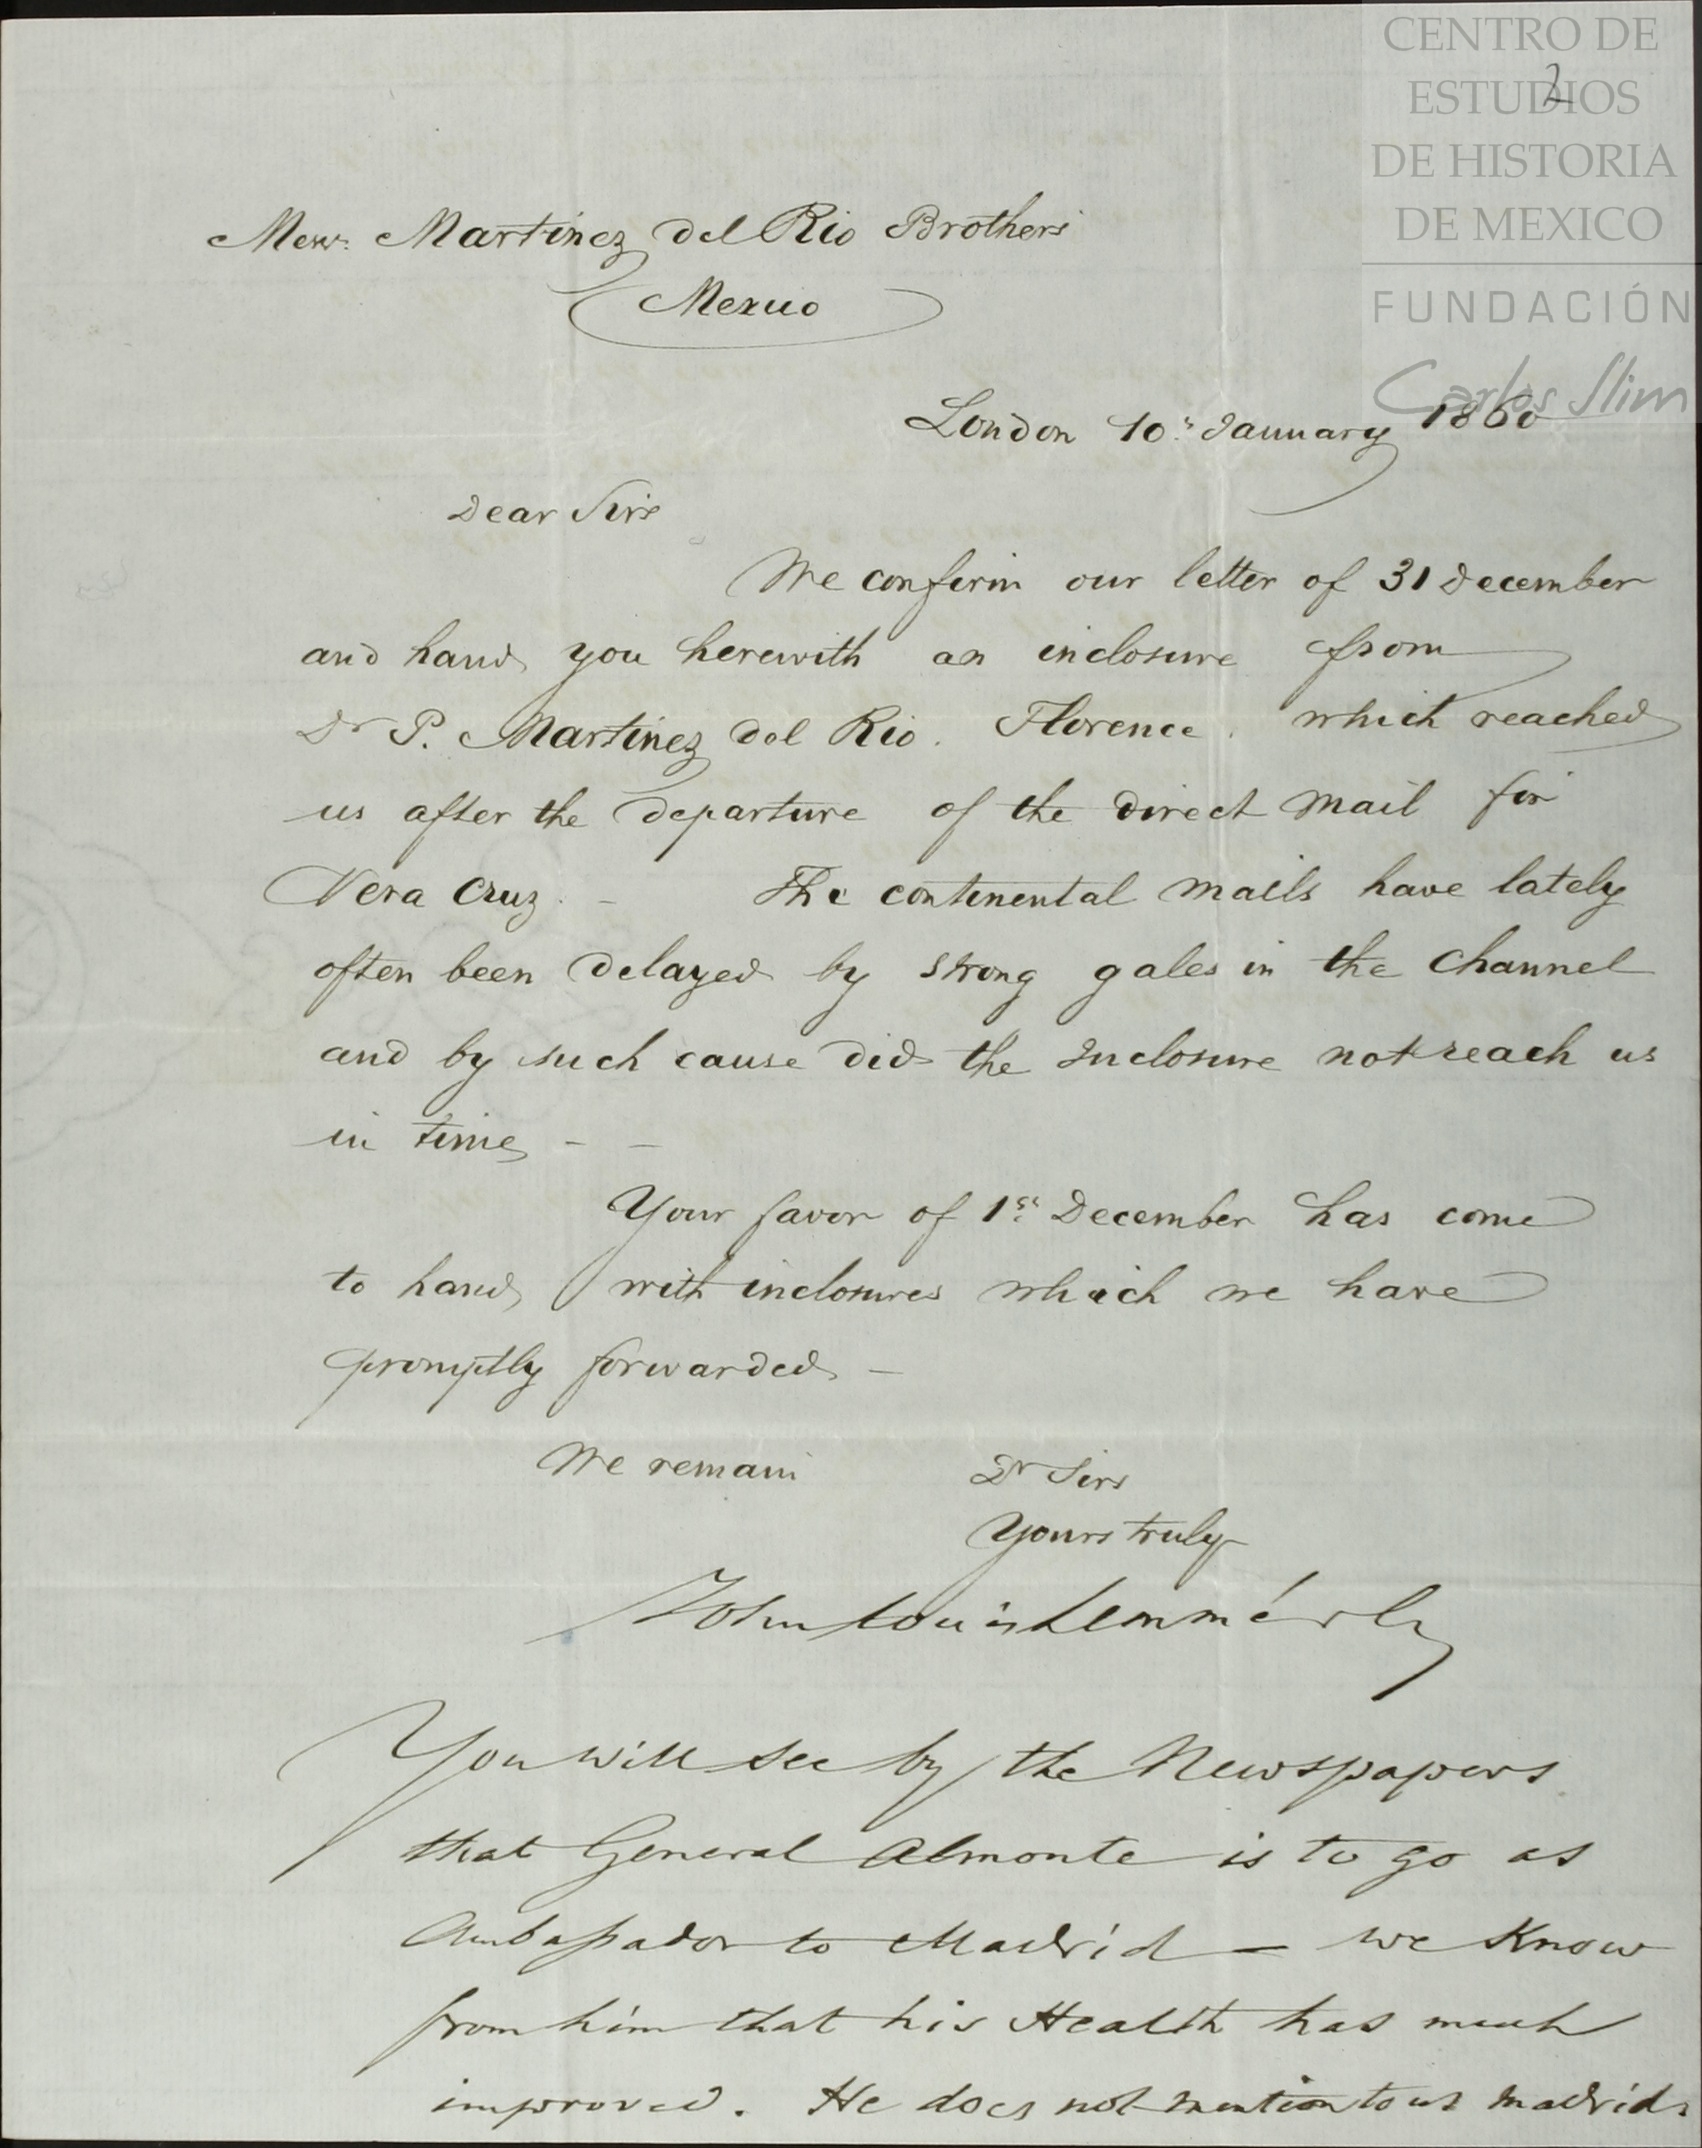 CENTRO DE
ESTUDIOS
DE HISTORIA
DE MEXICO
FUNDACIÓN
Carlos Slim
2
Messrs. Martinez del Rio Brothers
Mexico
London 10th January 1860
Dear Sirs
We confirm our letter of 31 December
and hand you herewith an inclosure from
Dr P. Martinez del Rio. Florence, which reached
us after the departure of the direct mail for
Vera Cruz. - The continental mails have lately
often been delayed by strong gales in the channel
and by such cause did the Inclosure not reach us
in time - -
Your favor of 1st December has come
to hand, with inclosures which we have
promptly forwarded -
We remain Dr Sirs
Yours truly
John Louis
You will see by the Newspapers
that General Almonte is to go as
Ambassador to Madrid - we know
from him that his Health has much
improved. He does not mention to us Madrid.